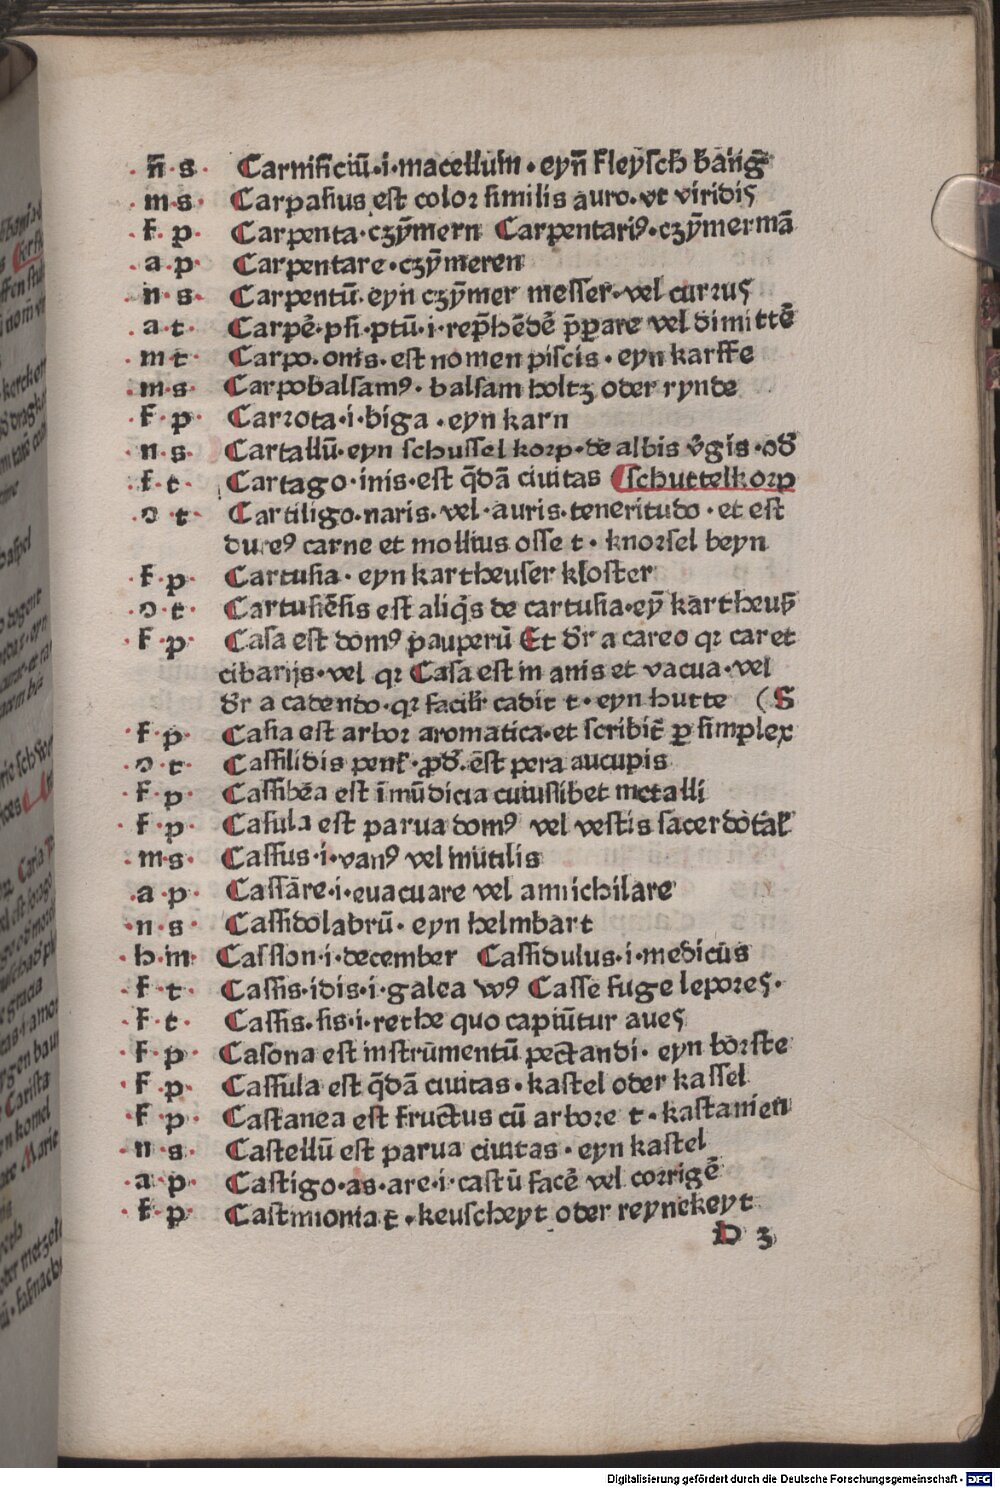 .n̄.s. Carnificiū.i.macellum.eyn̄ fleysch bāng
.m.s. Carpasius est color similis auro.vt viridis
.f.p. Carpenta.czȳmern Carpentariꝰ.czȳmermā
.a.p. Carpentare.czȳmeren
.n.s. Carpentū.eyn czȳmer messer.vel currus
.a.t. Carpē.psi.ptū.i.rep̄hēdē p̄parare vel dimittē
.m.t. Carpo.onis.est nomen piscis.eyn karffe
.m.s. Carpobalsamꝰ.balsam holtz oder rynde
.f.p. Carrota.i.biga.eyn karn
.n.s. Cartallū.eyn schussel korp.de albis v̄gis.od̄
.f.t. Cartago.inis.est q̄dā ciuitas (schuttelkorp
.o.t. Cartiligo.naris.vel.auris.teneritudo.et est
dureꝰ carne et mollius osse t.knorsel beyn
.f.p. Cartusia.eyn kartheuser kloster
.o.t. Cartusiēsis est aliq̄s de cartusia.eȳ kartheus̄
.f.p. Casa est domꝰ pauperū Et d̄r a careo qꝛ caret
cibarijs.vel qꝛ Casa est inanis et vacua.vel
d̄r a cadendo.qꝛ facilr̄ cadit t.eyn hutte (S
.f.p. Casia est arbor aromatica.et scribit̄ ꝑ simplex
.o.t. Cassilidis penl̄.ꝓd̄.est pera aucupis
.f.p. Cassibēa est īmūdicia cuiuslibet metalli
.f.p. Casula est parua domꝰ vel vestis sacerdotal̄
.m.s. Cassus.i.vanꝰ vel inutilis
.a.p. Cassāre.i.euacuare vel annichilare
.n.s. Cassidolabrū.eyn helmbart
.h.m. Casslon.i.december Cassidulus.i.medicus
.f.t. Cassis.idis.i.galea wꝰ Casse fuge lepores.
.f.t. Cassis.sis.i.rethe quo capiūtur aues
.f.p. Casona est instrūmentū pectandi.eyn borste
.f.p. Cassula est q̄dā ciuitas.kastel oder kassel
.f.p. Castanea est fructus cū arbore t.kastanien
.n.s. Castellū est parua ciuitas.eyn kastel
.a.p. Castigo.as.are.i.castū facē vel corrigē
.f.p. Castmionia t.keuscheyt oder reynekeyt
D 3
Digitalisierung gefördert durch die Deutsche Forschungsgemeinschaft - DFG